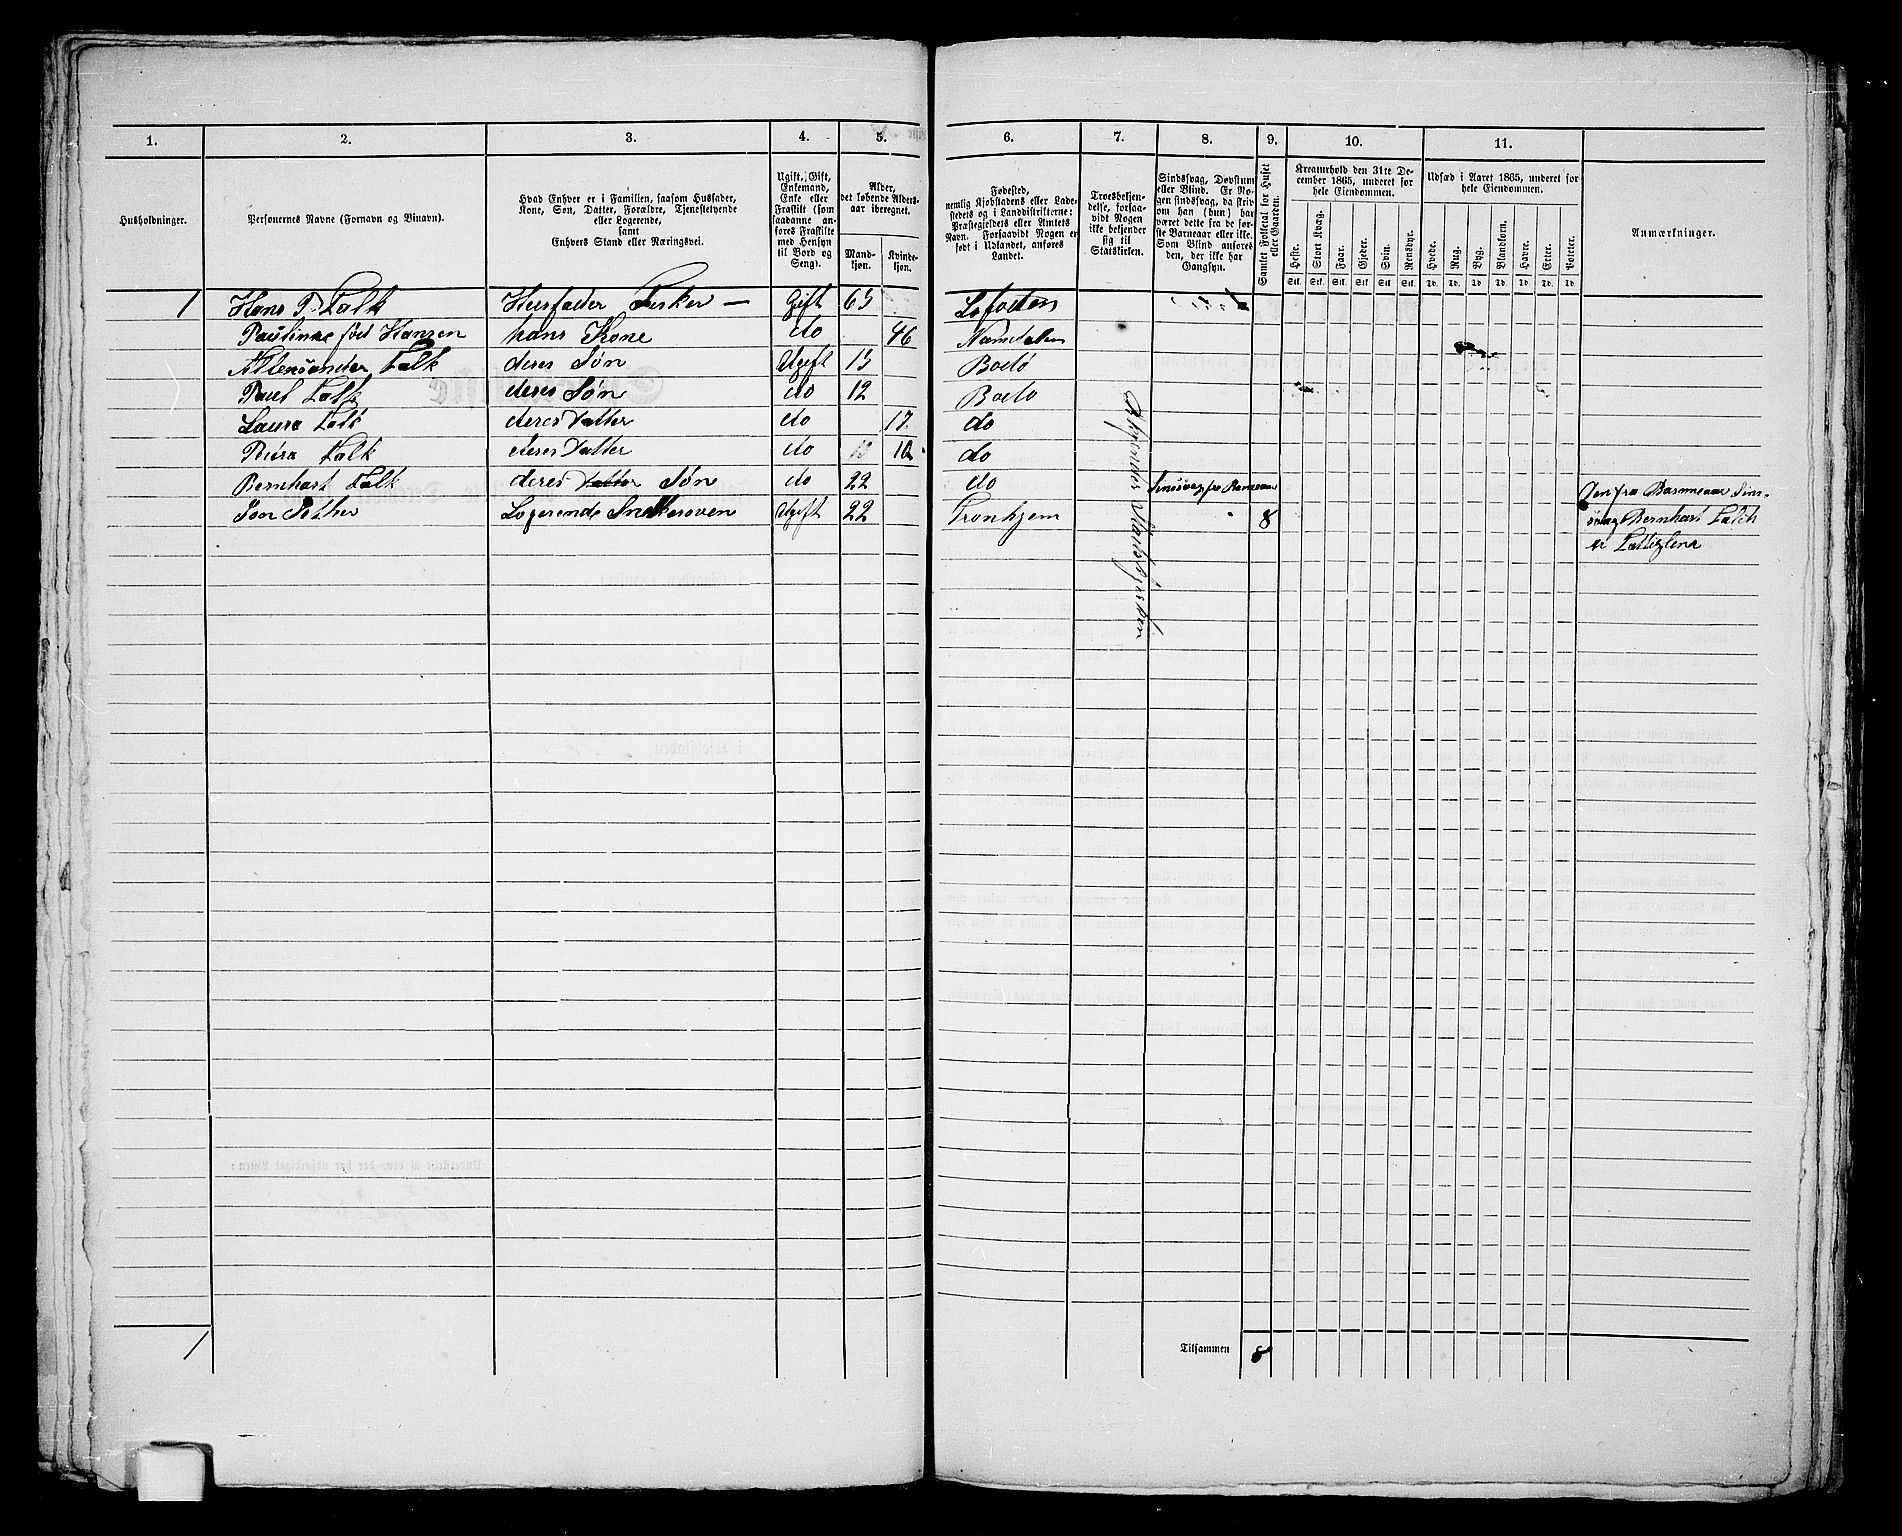 1. 2. 3. 4. 5. 6. 7. 8. 9. 10. 11.
Husholdninger.
Personernes Navne (Fornavn og Binavn).
Hvad Enhver er i Familien, saasom Husfader,
Kone, Søn, Datter, Forældre, Tjenestetyende
eller Logerende,
samt
Enhvers Stand eller Næringsvei.
Ugift, Gift,
Enkemand,
Enke eller
Fraskilt (som
saadanne an-
føres Fraskilte
med Hensyn
til Bord og
Seng).
Alder,
det løbende Alders-
aar iberegnet.
Mand-
kjøn.
Kvinde-
kjøn.
Fødested,
nemlig Kjøbstadens eller Lade-
stedets og i Landdistrikterne:
Præstegjeldets eller Amtets
Navn. Forsaavidt Nogen er
født i Udlandet, anføres
Landet.
Troesbekjen-
delse, forsaa-
vidt Nogen
ikke bekjender
sig til
Statskirken.
Sindssvag, Døvstum
eller Blind. Er No-
gen sindssvag, da skriv
om han (hun) har
været dette fra de før-
ste Barneaar eller ikke.
Som Blind anføres
den, der ikke har
Gangsyn.
Samlet Folketal for Huset
eller Gaarden.
Kreaturhold den 31te De-
cember 1865, underet for
hele Eiendommen.
Heste. Stort Kvæg. Faar. Gjeder. Svin. Rensdyr.
Stk. Stk. Stk. Stk. Stk. Stk.
Udsæd i Aaret 1865, underet for
hele Eiendommen.
Hvede. Rug. Byg. Blandkorn. Havre. Erter. Poteter.
Td. Td. Td. Td. Td. Td. Td.
Anmærkninger.
1 Hans P. Falk Husfader Fisker — Gift 63 Lofoten
Paulinne fød Hansen hans Kone do 46 Namdalen
Alleksander Falk deres Søn Ugift 15 Bodø
Paul Falk deres Søn do 12 Bodø
Laura Falk deres Datter do 17 do
Falk deres Datter do 10 do
Bernhart Falk deres Datter Søn do 22 do Sinssvag fra Barneaar Den fra Barneaar Sins-
Jon Pether Logerende Snekkersven Ugift 22 Tronhjem 8 svag Bernhart Falch
er Fattiglem
Statskirken
1 Tilsammen 8